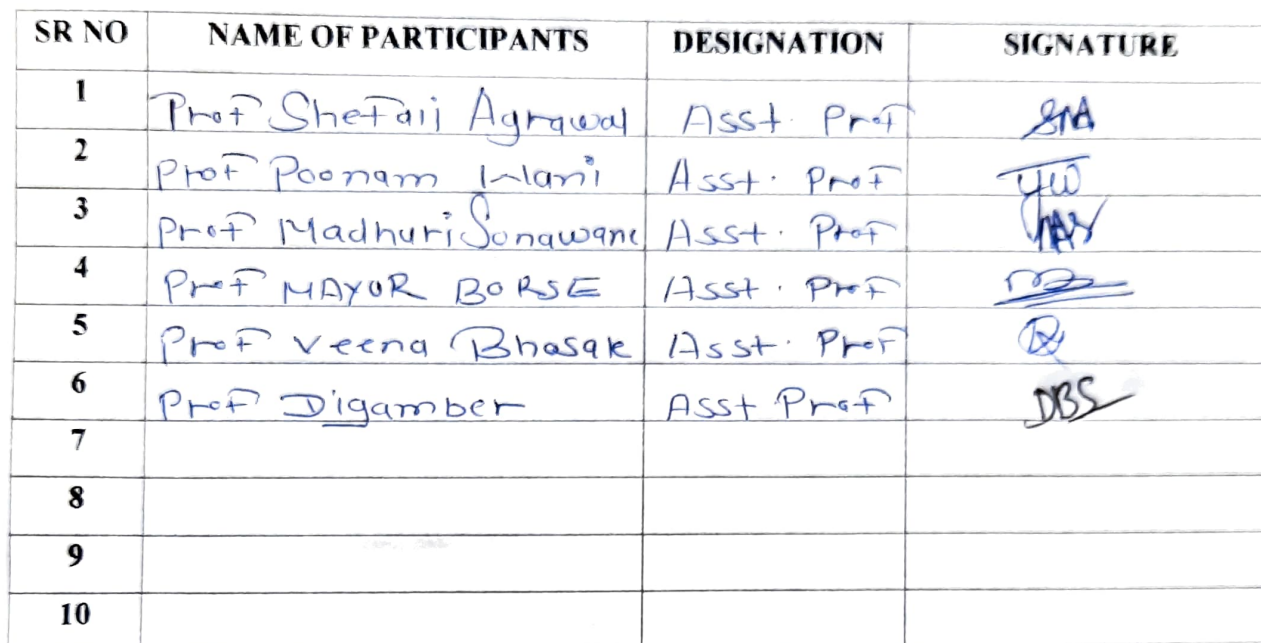 SR NO NAME OF PARTICIPANTS DESIGNATION SIGNATURE
1 Prof Shefali Agrawal Asst. Prof
2 Prof Poonam Wani Asst. Prof
3 Prof Madhuri Sonawane Asst. Prof
4 Prof MAYUR BORSE Asst. Prof
5 Prof Veena Bhasak Asst. Prof
6 Prof Digamber Asst Prof DBS
7
8
9
10